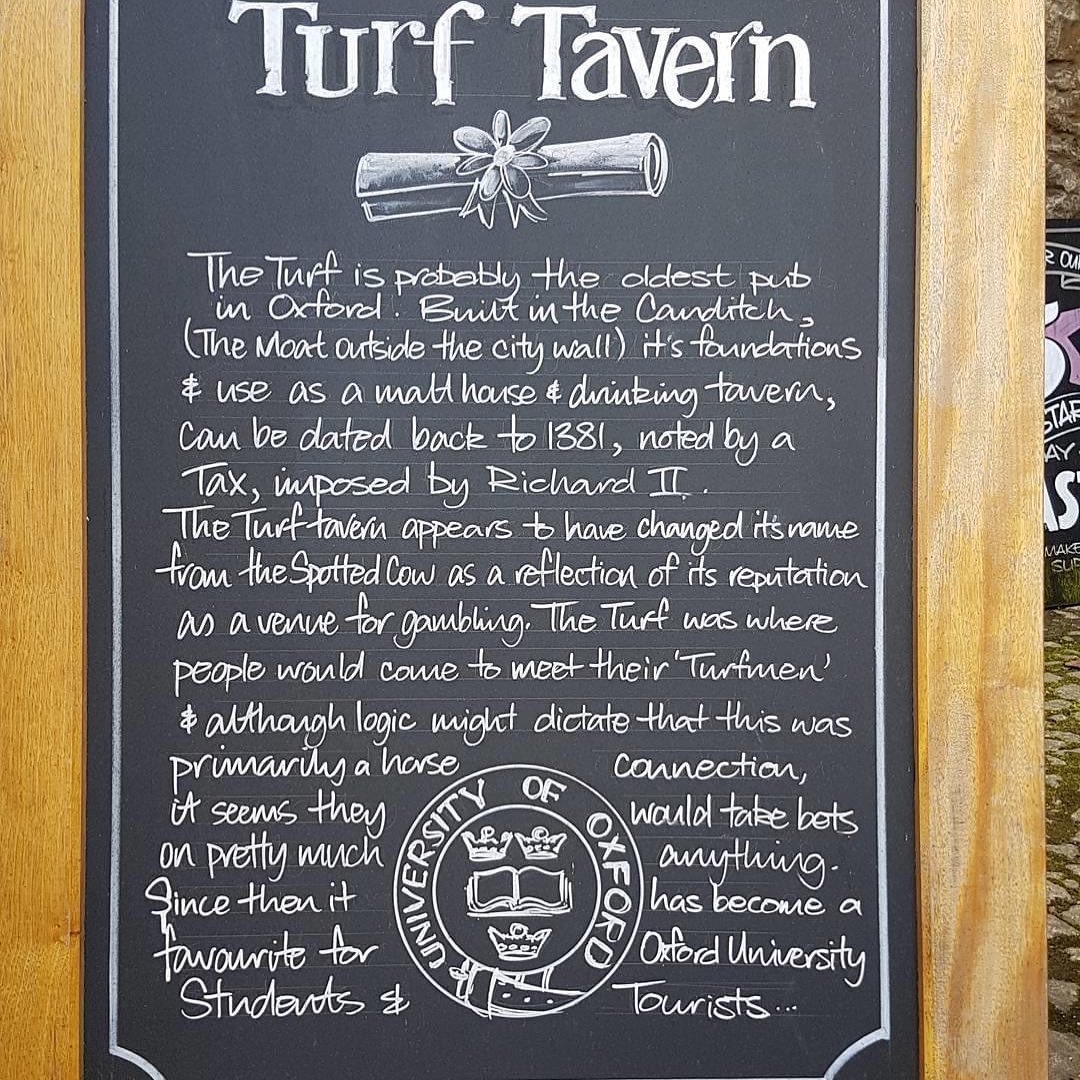 Turf Tavern
The Turf is probably the oldest pub
in Oxford. Built in the Canditch,
(The Moat outside the city wall) it's foundations
& use as a malt house & drinking tavern,
can be dated back to 1381, noted by a
Tax, imposed by Richard II.
The Turf tavern appears to have changed its name
from the Spotted Cow as a reflection of its reputation
as a venue for gambling. The Turf was where
people would come to meet their 'Turfmen'
& although logic might dictate that this was
primarily a horse connection,
it seems they would take bets
on pretty much anything.
Since then it has become a
favourite for Oxford University
Students & Tourists...
UNIVERSITY OF OXFORD